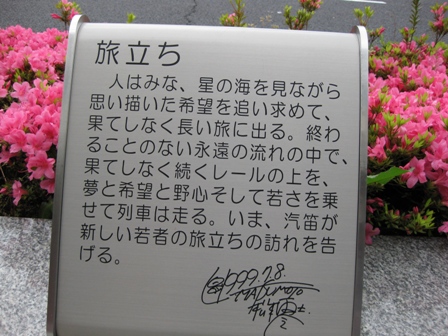 旅立ち
人はみな、星の海を見ながら
思い描いた希望を追い求めて、
果てしなく長い旅に出る。終わ
ることのない永遠の流れの中で、
果てしなく続くレールの上を、
夢と希望と野心そして若さを乗
せて列車は走る。いま、汽笛が
新しい若者の旅立ちの訪れを告
げる。
1999.7.8.